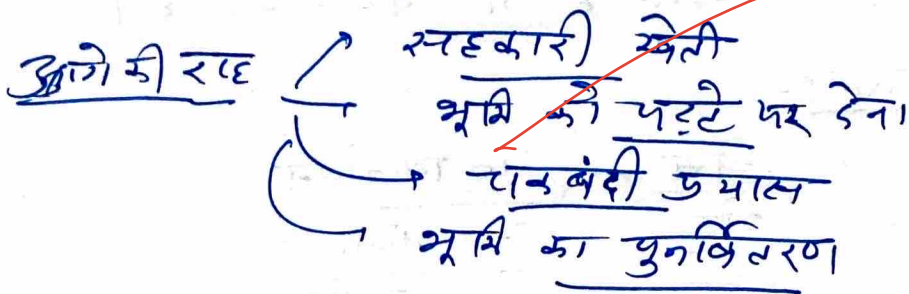 आगे की राह
सहकारी खेती
भूमि को पट्टे पर देना
चकबंदी प्रयास
भूमि का पुनर्वितरण